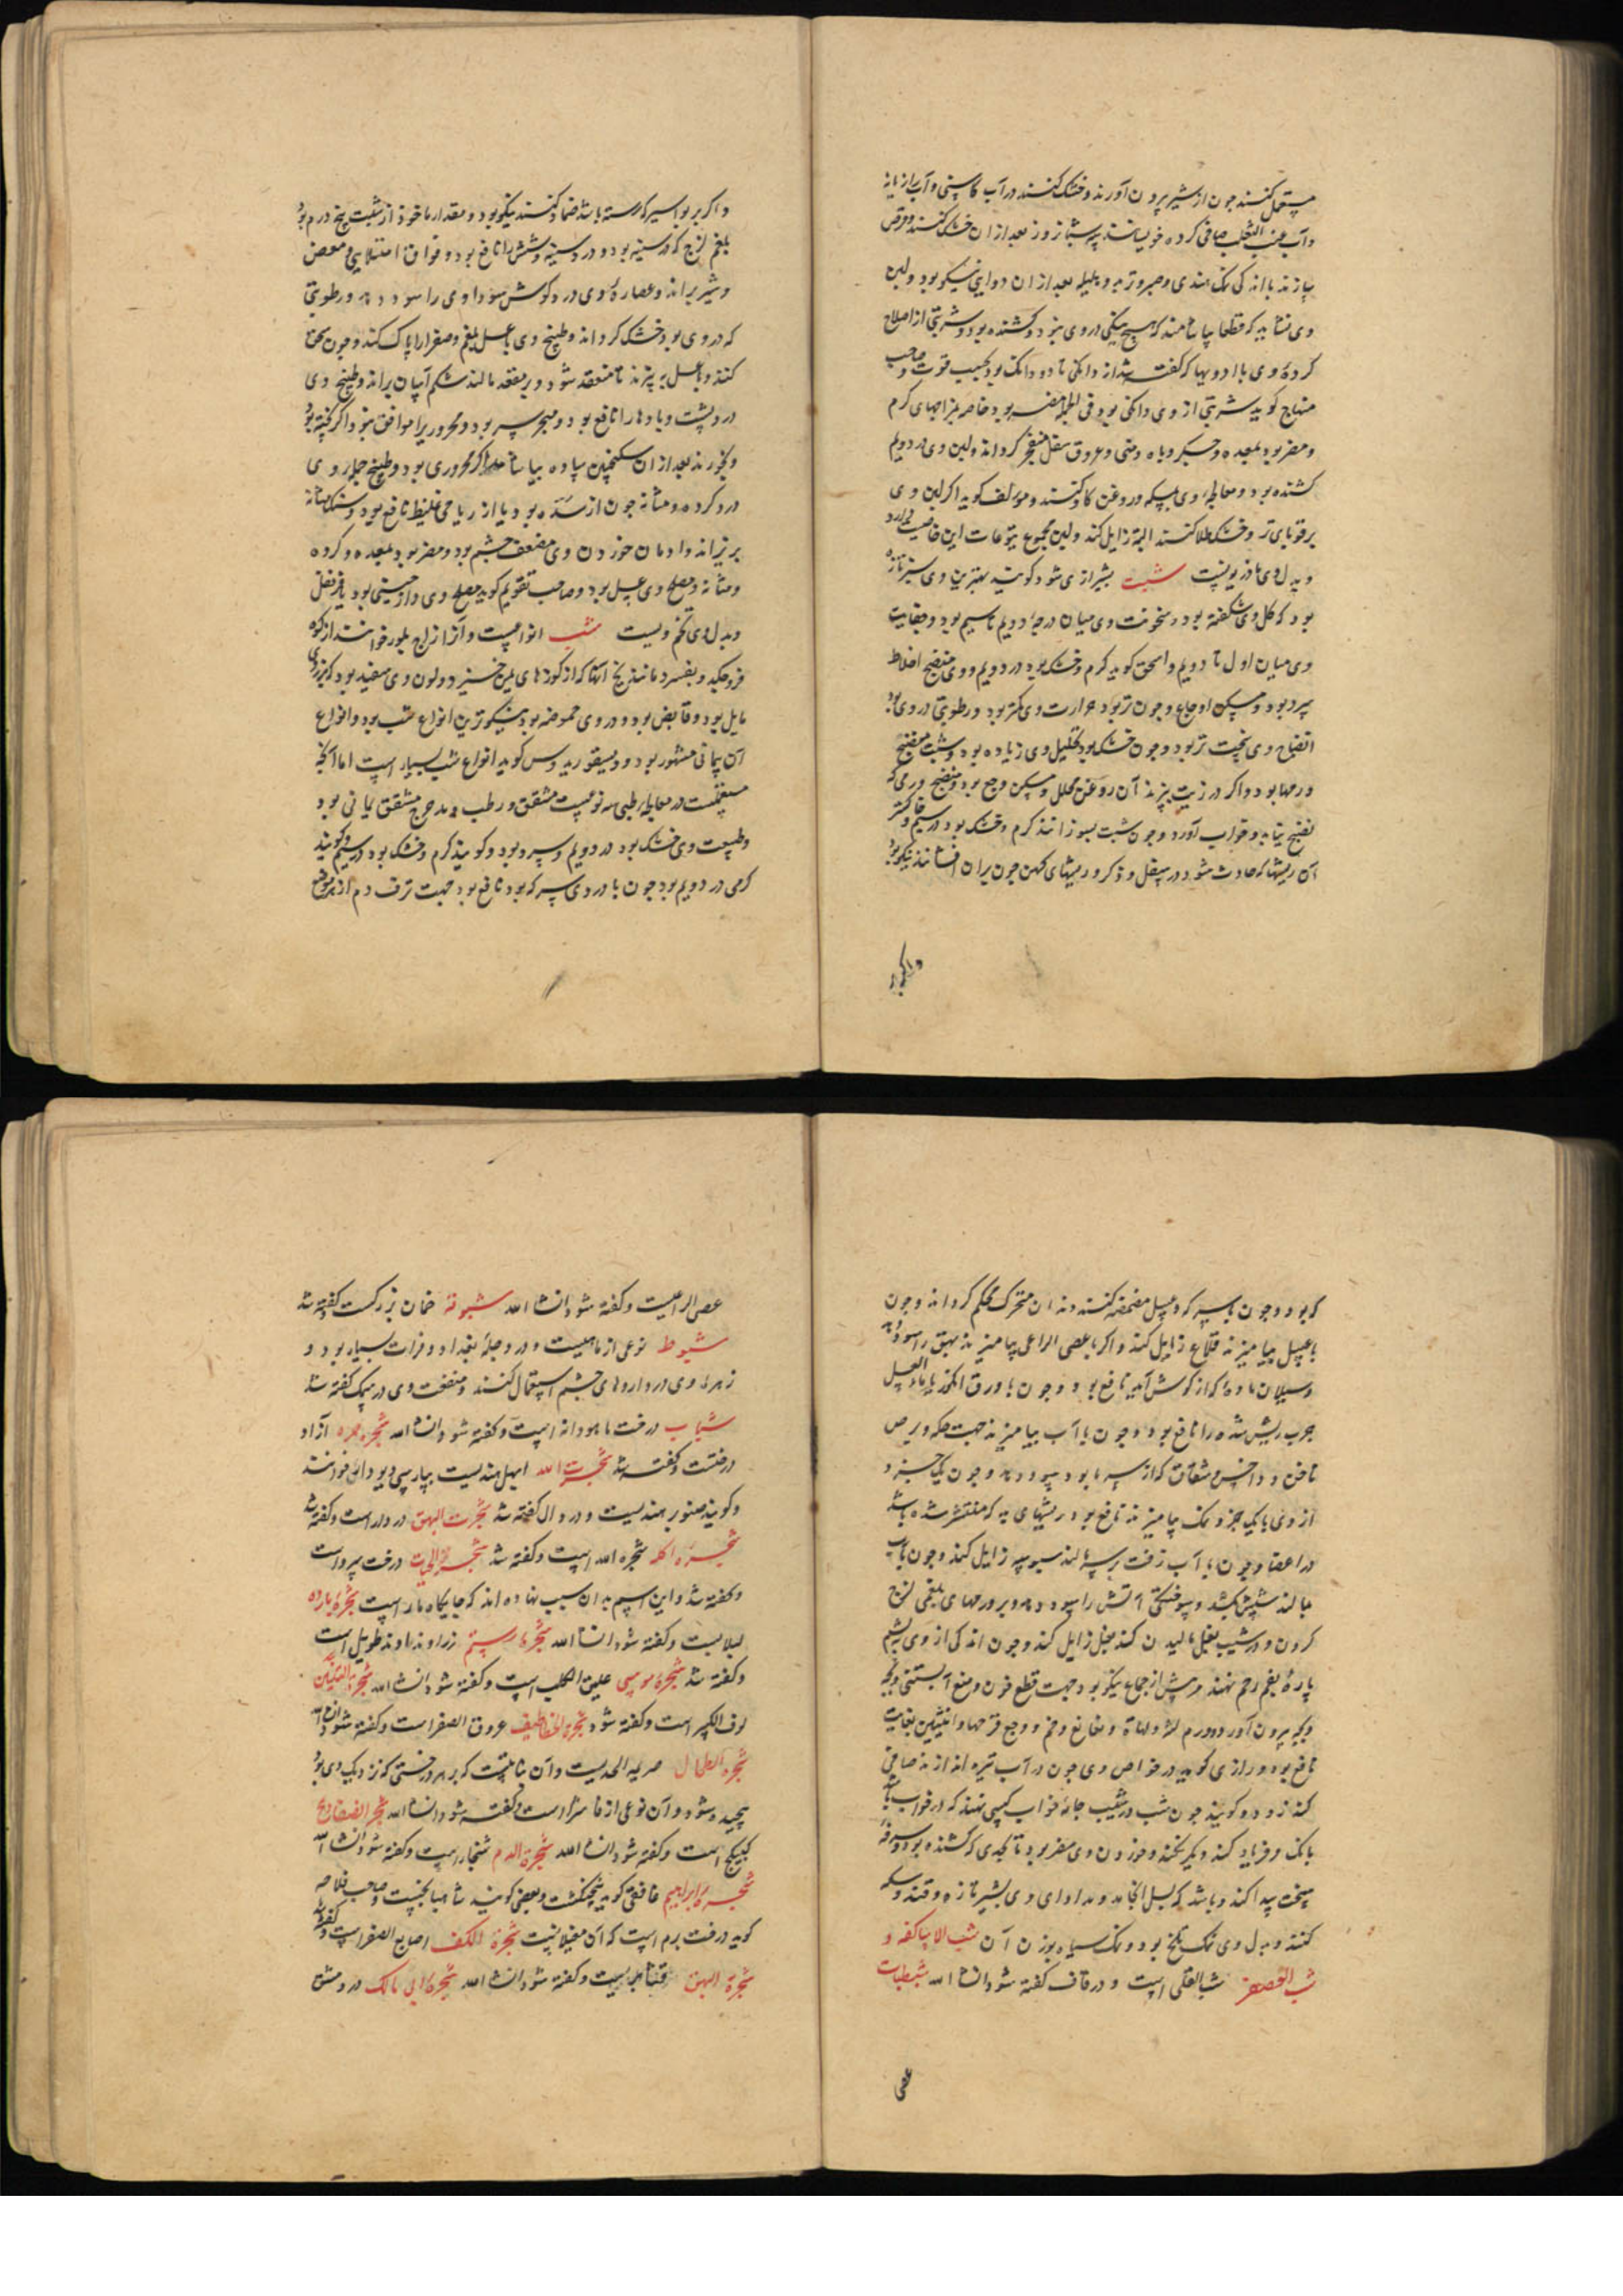 مستعمل کنند چون از شیر بیرون آورند و خشک کنند در آب کاسنی و آب رازیانه
و آب عنب الثعلب صافی کرده خویسانند سه شبانروز بعد از ان خشک کنند و قرص
سازند با اندکی نمک هندی و صبر و تربد و هلیله بعد از ان دوایی نیکو بود و لبن
وی نشاید که قطعا بیاشامند که هیچ نیکی در وی نبود و کشنده بود و شربتی از اصلاح
کرده وی با ادویها که گفته شد از دانکی تا دو دانک بود بحسب قوت و صاحب
منهاج کوید شربتی از وی دانکی بود فی الجمله مضر بود خاصه بمزاجهای کرم
و مضر بود بمعده و جکر و باه و منی و عروق سفل منفجر کرداند و لبن وی در دویم
کشنده بود و معالجه وی بمسکه و روغن کاو کنند و مؤلف کوید اکر لبن وی
بر قوبای تر و خشک طلا کنند البته زایل کند و لبن مجموع یتوعات این خاصیت دارد
و بدل وی مازریونست شبت بشیرازی شود کویند بهترین وی سبز تازه
بود که کل وی شکفته بود و سخونت وی میان درجه دویم تا سیم بود و یبوست
وی میان اول تا دویم و اسحق کوید کرم و خشک بود در دویم و وی منضج اخلاط
سرد بود و مسکن اوجاع و چون تر بود حرارت وی کمتر بود و رطوبتی در وی بود
انضاج وی سخت تر بود و چون خشک بود تحلیل وی زیاده بود و شبت منضج
ورمها بود و اکر در زیت بپزند آن روغن محلل و مسکن وجع بود و منضج ورمی که
نضج نیابد و خواب آورد و چون شبت بسوزانند کرم و خشک بود در سیم خاکستر
آن ریشها که حادث شود در سفل و ذکر و ریشهای کهن چون بران افشانند نیکو بود
و اکر بر
و اکر بر بواسیر که رسته باشد ضماد کنند نیکو بود و مقدار ماخوذ از شبت پنج درم بود
بلغم لزج که در سینه بود و درد سینه و شش را نافع بود و فواق امتلایی و مغص
و شیر براند و عصاره وی درد کوش سوداوی را سود دهد و رطوبتی
که در وی بود خشک کرداند و طبیخ وی با عسل بلغم و صفرا را پاک کند و چون سحق
کنند و با عسل بپزند تا منعقد شود و بر مقعد مالند شکم آسان براند و طبیخ وی
درد پشت و بادها را نافع بود و مبخر سر بود و محروری را موافق نبود و اکر پخته بود
و بخورند بعد از ان سکنجبین ساده بیاشامد اکر محروری بود و طبیخ جمله وی
درد کرده و مثانه چون از سده بود یا از ریاحی غلیظ نافع بود و سنک مثانه
بریزاند و ادمان خوردن وی مضعف چشم بود و مضر بود بمعده و کرده
و مثانه و مصلح وی عسل بود و صاحب تقویم کوید مصلح وی دارچینی بود یا قرنفل
و بدل وی تخم ویست شب انواعست و آنرا زاج بلور خوانند از کوه
فرو چکد و بفسرد مانند یخ آنها که از کوزهای یمن خیزد و لون وی سفید بود که بزردی
مایل بود و قابض بود و در وی حموضه بود نیکوترین انواع شب بود و انواع
آن یمانی مشهور بود و دیسقوریدوس کوید انواع شب بسیار است اما آنچه
مستعملست در معالجه طبی سه نوعست مشقق و رطب و مدحرج مشقق یمانی بود
و طبیعت وی خشک بود در دویم و سرد بود و کویند کرم و خشک بود در سیم و کویند
کرمی در دویم بود چون با دردی سرکه بود نافع بود جهت نزف دم از هر موضع
که بود و چون با سرکه و عسل مضمضه کنند دندان متحرک محکم کرداند و چون
با عسل بیامیزند قلاع زایل کند و اکر با عصی الراعی بیامیزند بهق را سود دهد
و سیلان ماده که از کوش آید نافع بود و چون با ورق انگور یا با ماء العسل
جرب ریش شده را نافع بود و چون با آب بیامیزند جهت حکه و برص
ناخن و داحس و شقاق که از سرما بود سود دهد و چون یک جزو
از وی با یک جزو نمک بیامیزند نافع بود و ریشهای بد که منتشر شده باشد
در اعضا و چون با آب زفت بر سر مالند سبوسه زایل کند و چون با آب
بمالند شپش بکشد و سوختگی آتش را سود دهد و بر ورمهای بلغمی لزج
کردن و در شیب بغل مالیدن کند بغل زایل کند و چون اندکی از وی بپشم
پاره بفم رحم نهند پیش از جماع نیکو بود جهت قطع خون و منع آبستنی و بچه
بیرون آورد و ورم لثه و لهاة و نغانغ و فم و وجع قرحها و انثیین بغایت
نافع بود و رازی کوید در خواص وی چون در آب تیره اندازند صافی
کند زود و کویند چون شب در شیب جامه خواب کسی نهند که در خواب
بانک و فریاد کند دیکر نکند و خوردن وی مضر بود تا بحدی که کشنده بود و سرفه
سخت پیدا کند و باشد که بسل انجامد و مداوای وی بشیر تازه و قند و مسکه
کنند و بدل وی نمک تلخ بود و نمک سیاه بوزن آن شب الاساکفه و
شب العصفر شب القلی است و در قاف گفته شود انشاء الله شبطبات
عصی
عصی الراعیست و کفته شود انشاء الله شبوقه خمان بزرگست و کفته شد
شبوط نوعی از ماهیست و در دجله بغداد و فرات بسیار بود و
زهره وی در داروهای چشم استعمال کنند و منفعت وی در سمک کفته شد
شباب درخت ماهودانه است و کفته شود انشاء الله شجره حره آزاد
درختست و کفته شد شجرت الله ابهل هندیست بپارسی دیودار خوانند
و کویند صنوبر هندیست و در دال کفته شد شجرت البهق در دار است و کفته شد
شجره الله شجره الله است و کفته شد شجرة الحیات درخت سرو است
و کفته شد و این اسم بدان سبب نهاده اند که جایگاه مار است شجره بارده
لبلابست و کفته شود انشاء الله شجره رستم زراوند طویل است
و کفته شد شجره موسی علیق الکلب است و کفته شود انشاء الله شجرة التنین
لوف الکبیر است و کفته شود شجرة الخطاطیف عروق الصفر است و کفته شود انشاء الله
شجرة الطحال صریمة الجدیست و آن نباتیست که بر هر درختی که نزدیک وی بود
پیچیده شود و آن نوعی از است و کفته شود انشاء الله شجر الضفادع
کبیکج است و کفته شود انشاء الله شجرة الدم شنجار است و کفته شود انشاء الله
شجره ابراهیم غافقی کوید پنجنکشت و بعضی کویند شاهبانجست و صاحب فلاحه
کوید درخت برم است که آن مغیلانست شجرة الکف اصابع الصفر است و کفته شد
شجرة البهق قنابریست و کفته شود انشاء الله شجره ابی مالک در دمشق